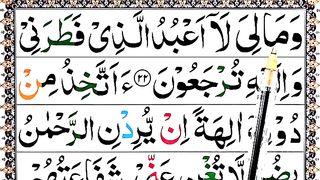 وَمَا لِىَ لَآ اَعْبُدُ الَّذِىْ فَطَرَنِىْ
وَاِلَيْهِ تُرْجَعُوْنَ ﴿۲۲﴾ ءَاَتَّخِذُ مِنْ
دُوْنِهٖٓ اٰلِهَةً اِنْ يُّرِدْنِ الرَّحْمٰنُ
بِضُرٍّ لَّا تُغْنِ عَنِّىْ شَفَاعَتُهُمْ